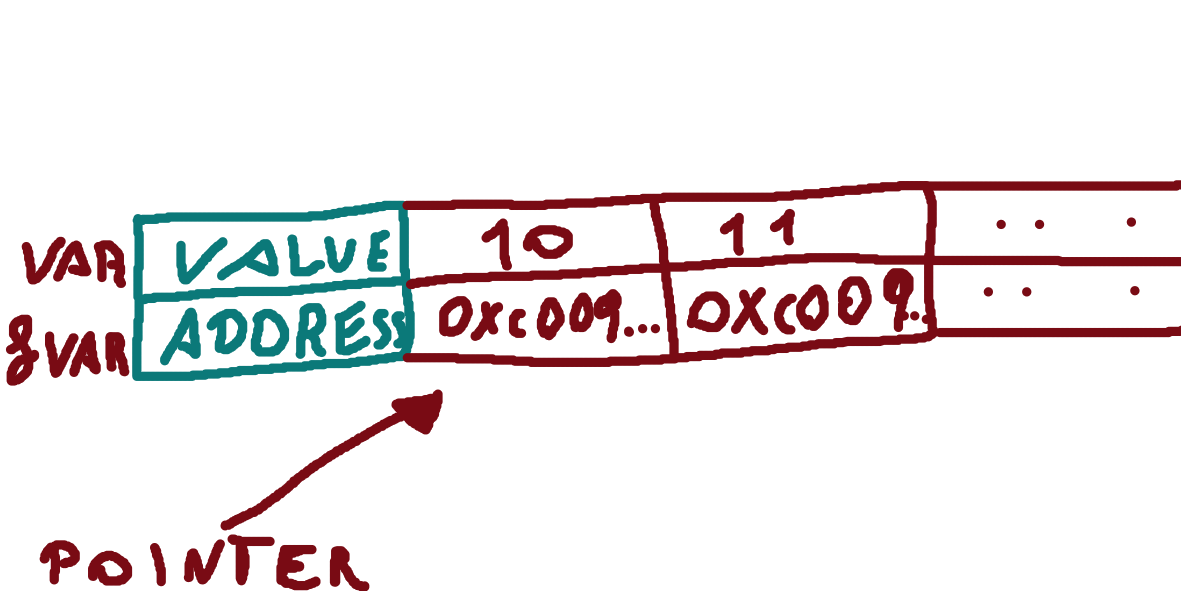 VAR VALUE 10 11 .. .
&VAR ADDRESS 0Xc009... 0Xc009.. .. .
POINTER